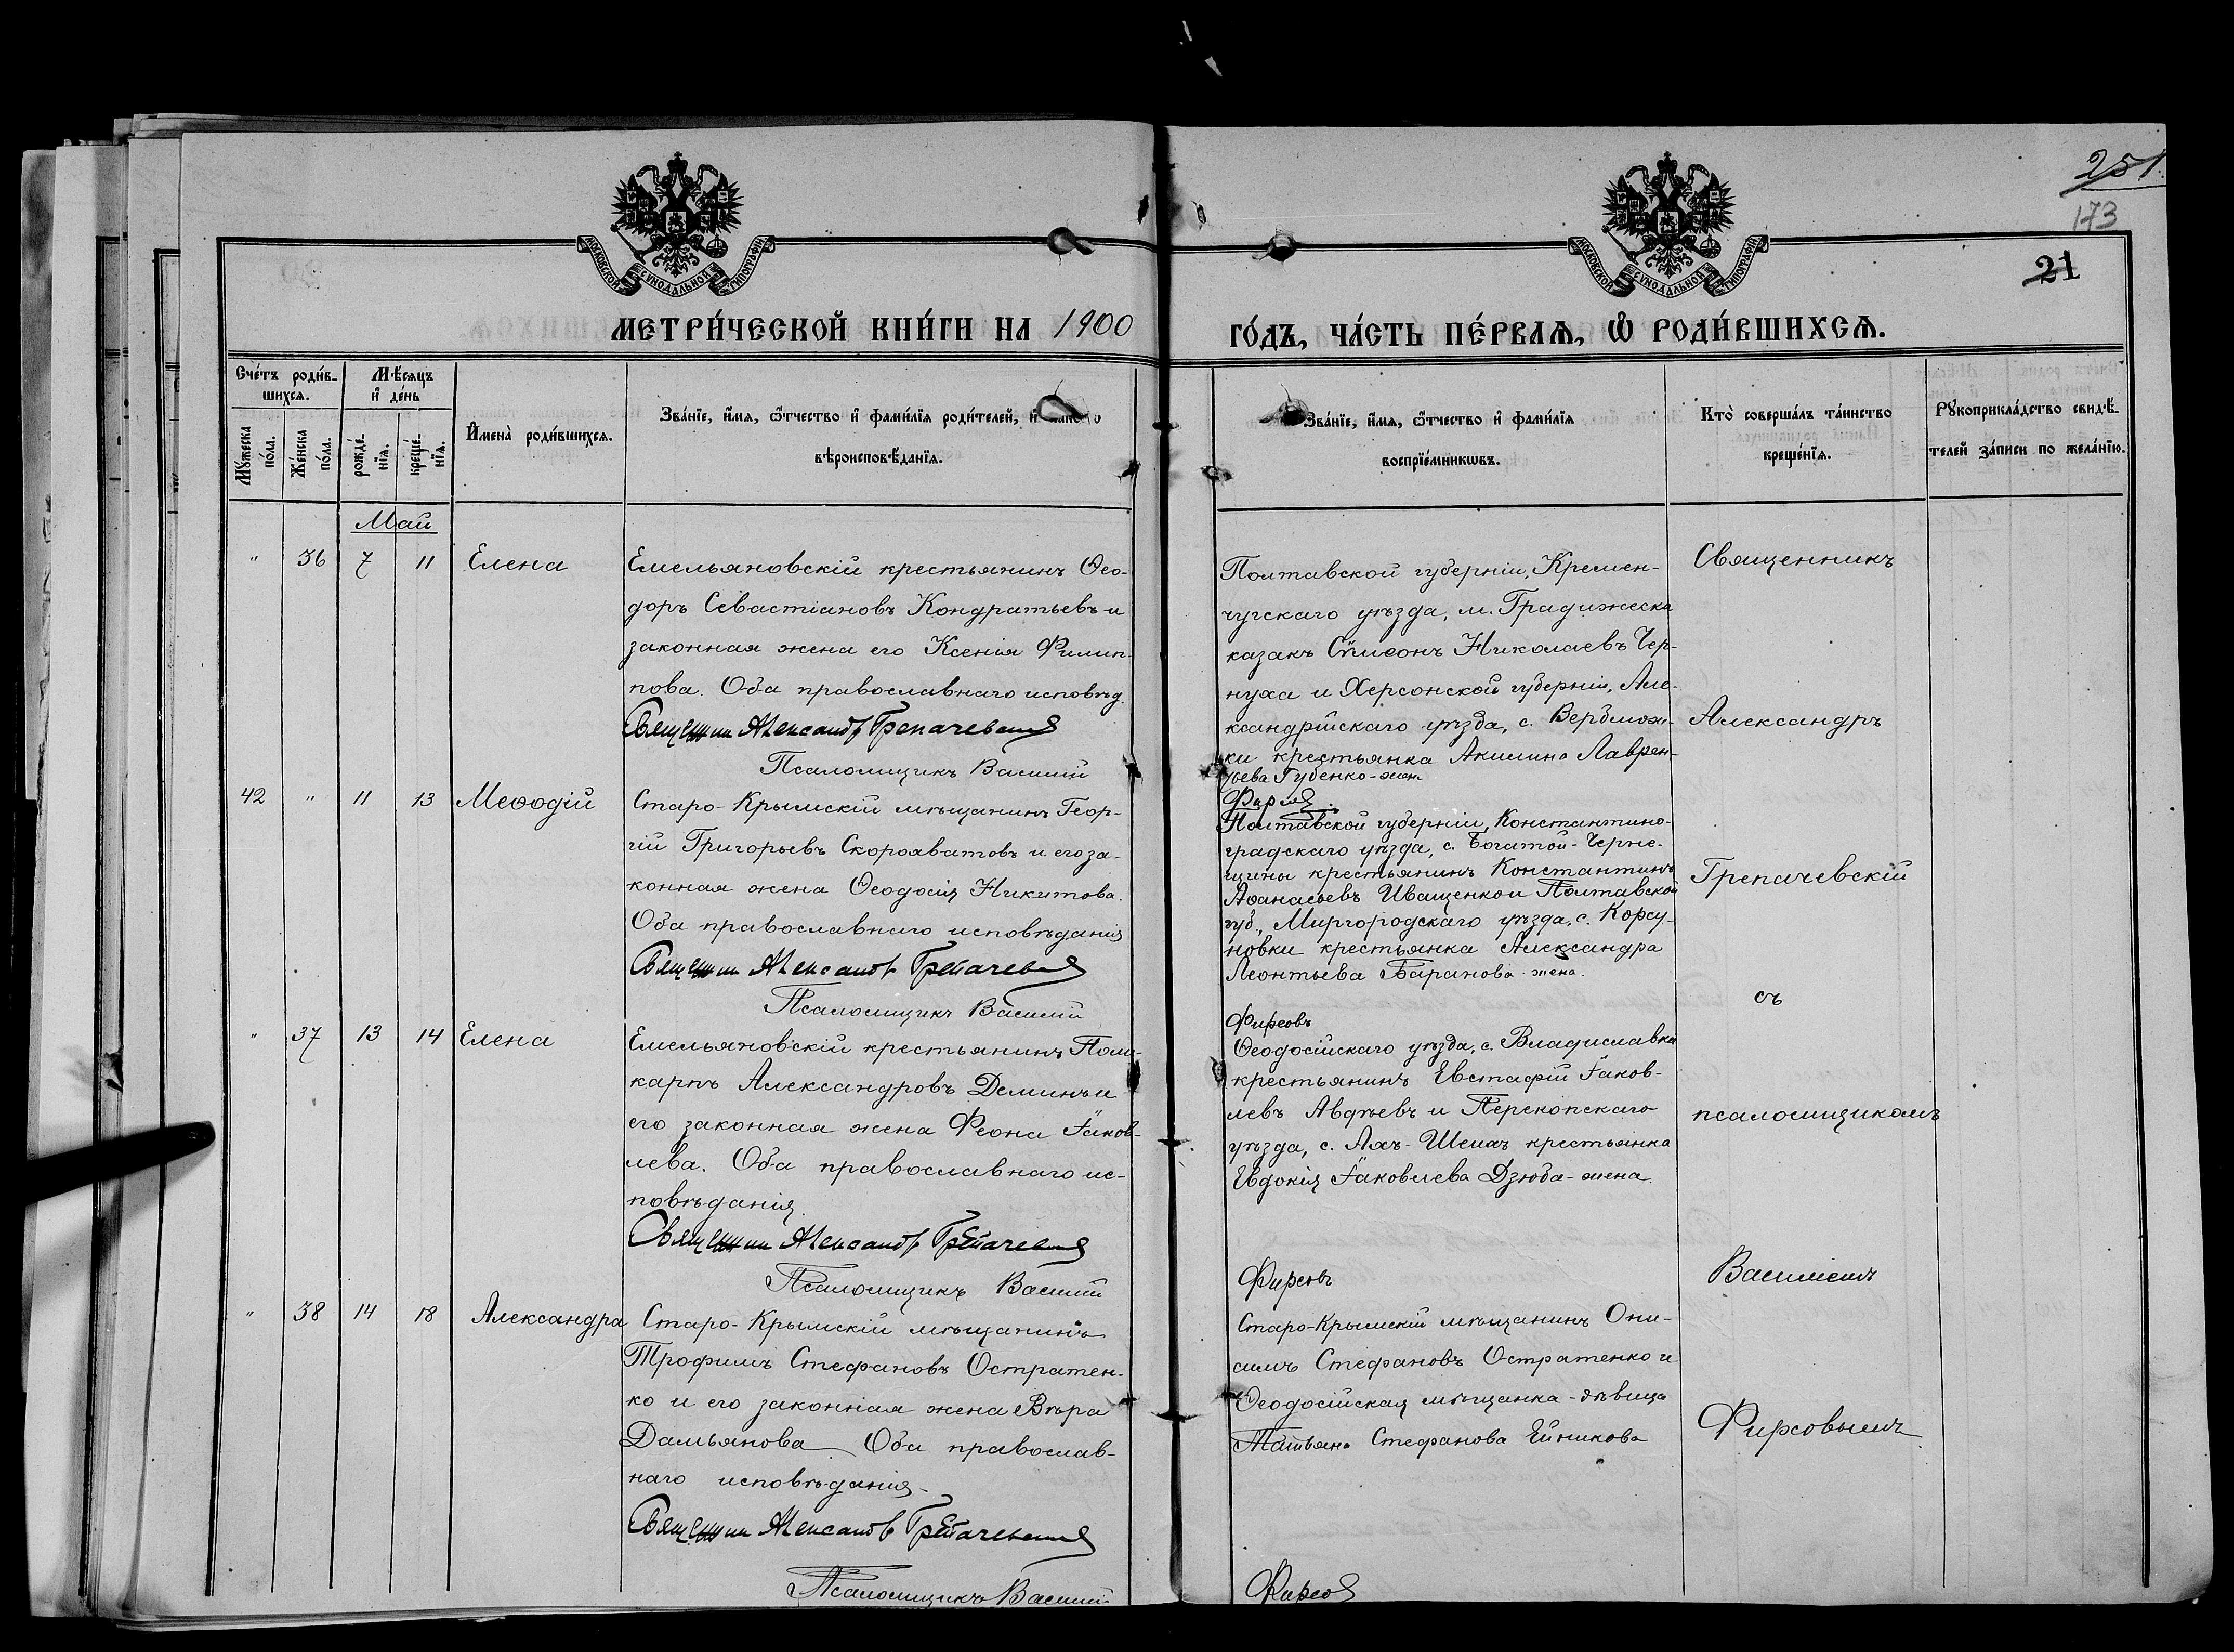 251.
173
21
МОСКОВСКОЙ СѴНОДАЛЬНОЙ ТИПОГРАФІИ
МОСКОВСКОЙ СѴНОДАЛЬНОЙ ТИПОГРАФІИ
МЕТРИ́ЧЕСКОЙ КНИ́ГИ НА 1900
ГО́ДЪ, ЧА́СТЬ ПЕ́РВАѦ, Ѡ҆ РОДИ́ВШИХСѦ.
Сче́тъ роди́в-
шихсѧ.
Мꙋ́жеска
по́ла.
Же́нска
по́ла.
Мѣ́сѧцъ
и҆ де́нь
рожде́-
нїѧ.
креще́-
нїѧ.
И҆мена̀ роди́вшихсѧ.
Зва́нїе, и҆́мѧ, ѻ҆́тчество и҆ фами́лїѧ роди́телей, и҆
вѣроисповѣ́данїѧ.
Зва́нїе, и҆́мѧ, ѻ҆́тчество и҆ фами́лїѧ
воспрїе́мникѡвъ.
Кто̀ соверша́лъ та́инство
креще́нїѧ.
Рꙋкоприкла́дство свидѣ́-
телей за́писи по жела́нїю.
Май
" 36 7 11 Елена
Емельяновскій крестьянинъ Ѳео-
доръ Севастіановъ Кондратьевъ и
законная жена его Ксенія Филип-
пова. Оба православнаго исповѣд.
Священник Александр Грепачевский
Псаломщикъ Василій
Полтавской губерніи, Кремен-
чугскаго уѣзда, м. Градижеска
казакъ Сѵмеонъ Николаевъ Чер-
нуха и Херсонской губерніи, Але-
ксандрійскаго уѣзда, с. Вербл
ки крестьянка Акилина Лаврен-
тьева Губенко - жена
Фирсов.
Священникъ
Александръ
Грепачевскій
съ
псаломщикомъ
Василіемъ
Фирсовымъ
42 " 11 13 Меѳодій
Старо-Крымскій мѣщанинъ Геор-
гій Григорьевъ Скороваватовъ и его за-
конная жена Ѳеодосія Никитова.
Оба православнаго исповѣданія
Священник Александр Грепачевский
Псаломщикъ Василій
Полтавской губерніи, Константино-
градскаго уѣзда, с. Богатой-Черне-
щины крестьянинъ Константинъ
Аѳанасьевъ Иващенко и Полтавской
губ., Миргородскаго уѣзда, с. Корсу-
новки крестьянка Александра
Леонтьева Баранова - жена.
Фирсовъ
" 37 13 14 Елена
Емельяновскій крестьянинъ Поли-
карпъ Александровъ Деминъ и
его законная жена Феона Іаков-
лева. Оба православнаго ис-
повѣданія.
Священник Александр Грепачевский
Псаломщикъ Василій
Ѳеодосійскаго уѣзда, с. Владиславки
крестьянинъ Евстафій Іаков-
левъ Авдѣевъ и Перекопскаго
уѣзда, с. Ахъ-Шеихъ крестьянка
Евдокія Іаковлева Дзюба - жена.
Фирсовъ
" 38 14 18 Александра
Старо-Крымскій мѣщанинъ
Трофимъ Стефановъ Остратен-
ко и его законная жена Вѣра
Дамьянова Оба православ-
наго исповѣданія.
Священник Александр Грепачевский
Псаломщикъ Василій
Старо-Крымскій мѣщанинъ Они-
симъ Стефановъ Остратенко и
Ѳеодосійская мѣщанка - дѣвица
Татьяна Стефанова Ейникова
Фирсов